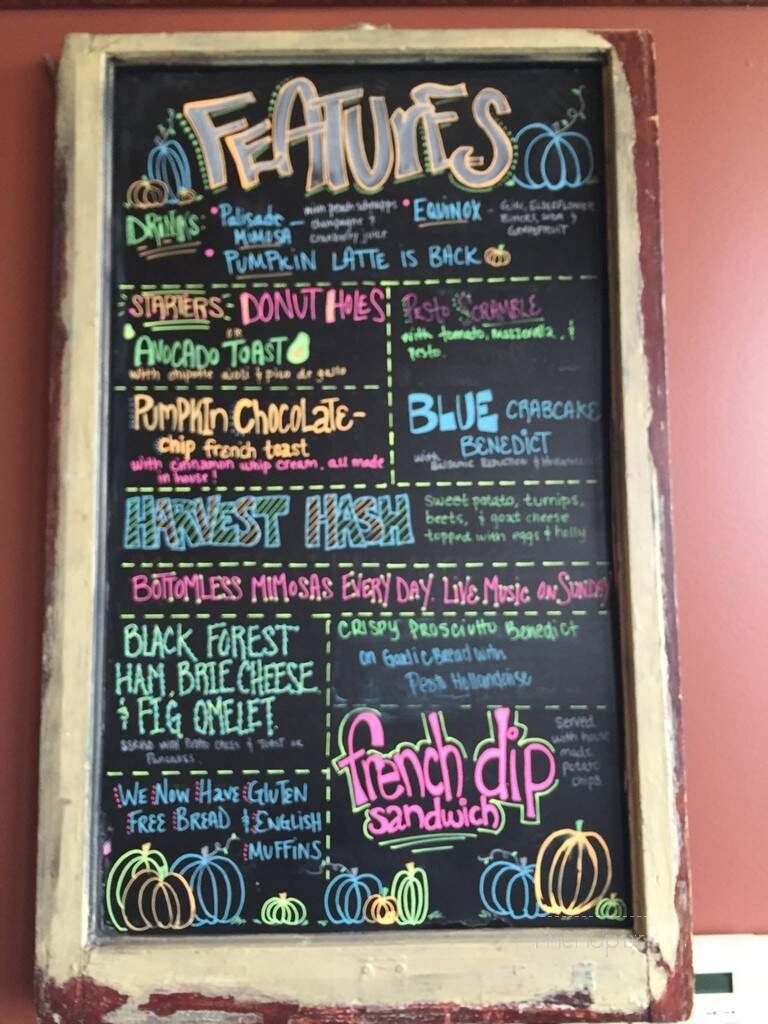 FEATURES
DRINKS: • Palisade MIMOSA — with peach schnapps champagne & cranberry juice
• EQUINOX - GIN, ELDERFLOWER BITTERS, SODA & GRAPEFRUIT
• PUMPKIN LATTE IS BACK
STARTERS: DONUT HOLES
OR
AVOCADO TOAST
with chipotle aioli & pico de gallo
Pesto SCRAMBLE
with tomato, mozzarella, &
pesto.
PUMPKIN CHOCOLATE-
chip french toast
with cinnamon whip cream. all made
in house!
BLUE CRABCAKE
BENEDICT
with BALSAMIC REDUCTION &
HARVEST HASH
Sweet potato, turnips,
beets, & goat cheese
topped with eggs & holly
BOTTOMLESS MIMOSAS EVERY DAY. LIVE MUSIC ON SUNDAY
BLACK FOREST
HAM, BRIE CHEESE
& FIG OMELET.
SERVED WITH POTATO CAKES & TOAST OR
PANCAKES.
CRISPY PROSCIUTTO Benedict
on Garlic Bread with
Pesto Hollandaise
french dip
sandwich
served
with house
made
potato
chips
WE NOW HAVE GLUTEN
FREE BREAD & ENGLISH
MUFFINS